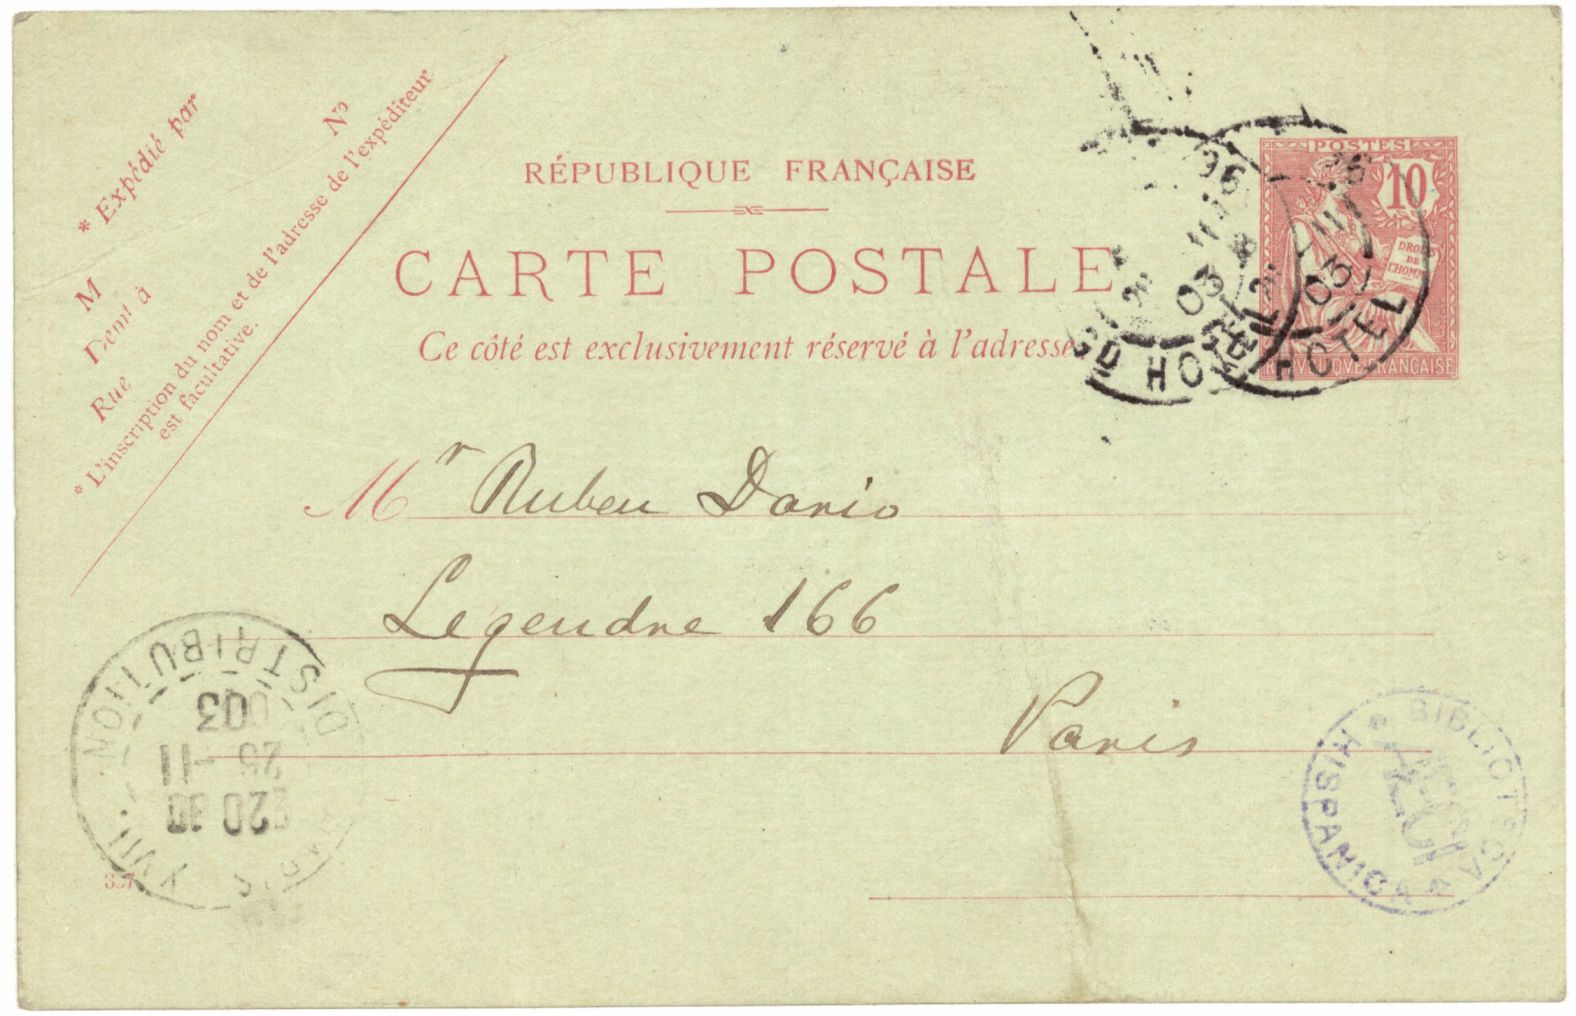 * Expédié par
M
Demt à
Rue
No
* L'inscription du nom et de l'adresse de l'expéditeur
est facultative.
RÉPUBLIQUE FRANÇAISE
CARTE POSTALE
Ce côté est exclusivement réservé à l'adresse.
POSTES
10
DROITS
DE
L'HOMME
RÉPUBLIQUE FRANÇAISE
HOTEL
03
HOTEL
03
Mr Ruben Dario
Legendre 166
Paris
PARIS XVII
DISTRIBUTION
20 30
26 -11
03
337
BIBLIOTECA
HISPANICA